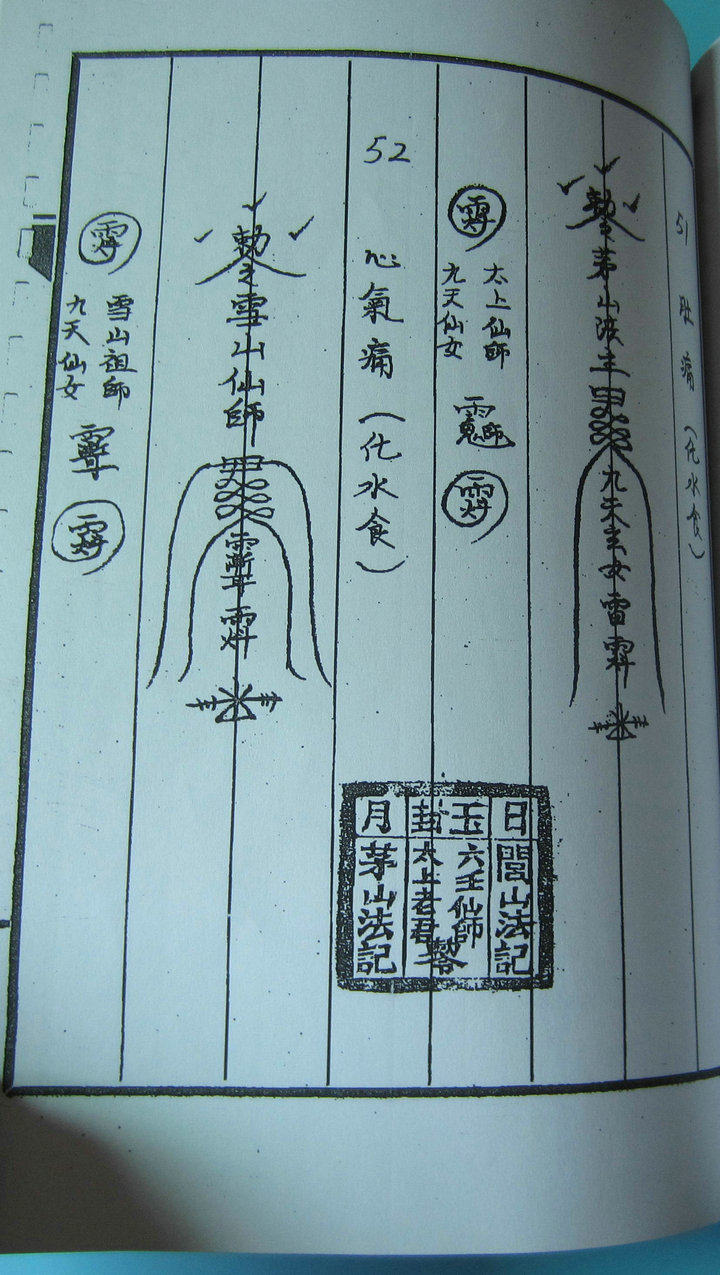 51
肚痛（化水食）
勅令茅山法主
九天玄女雷霹
太上仙師
九天仙女
52
心氣痛（化水食）
勅令雪山仙師
雪山祖師
九天仙女
日 玉 封 月
閭山法記
六壬仙師
太上老君
茅山法記